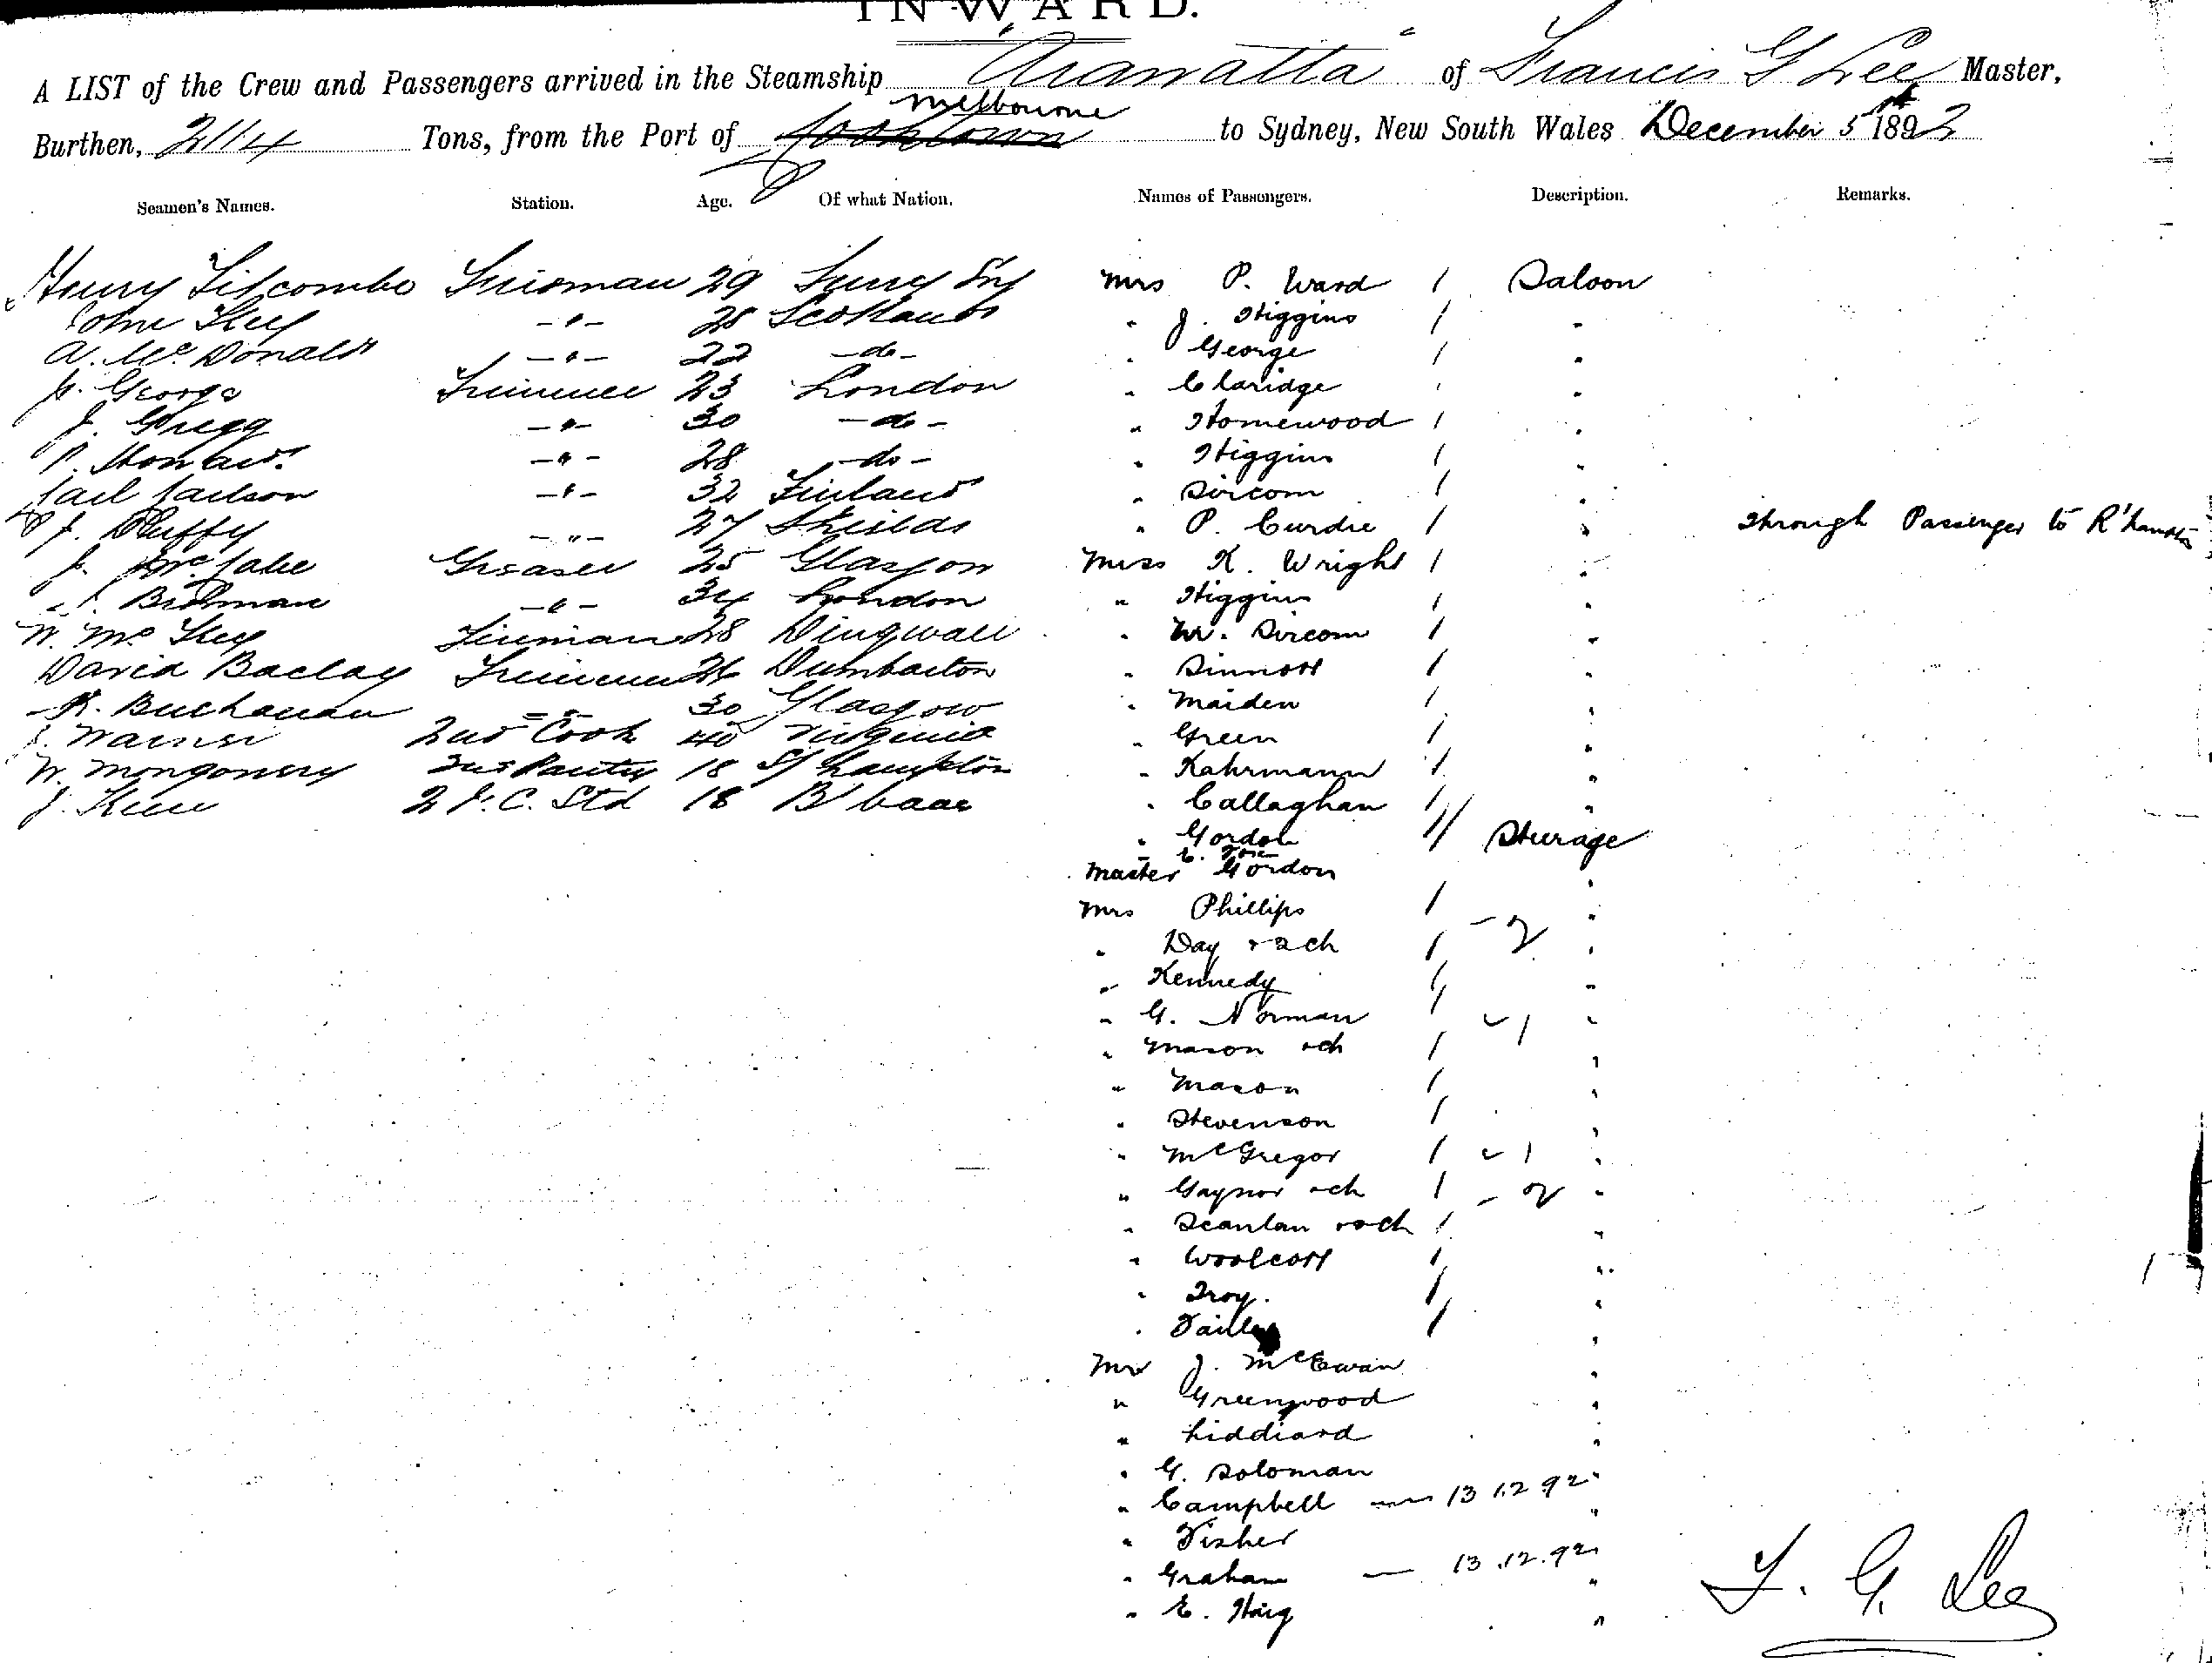 INWARD.
A LIST of the Crew and Passengers arrived in the Steamship "Arawatta" of Francis G Lee Master,
Burthen, 2114 Tons, from the Port of Melbourne to Sydney, New South Wales December 5th 1892
Seamen's Names. Station. Age. Of what Nation. Names of Passengers. Description. Remarks.
Henry Titcombe Fireman 29 Surry Eng Mrs P. Ward 1 Saloon
John Key -"- 28 Scotland " J. Higgins 1 "
A. McDonald -"- 22 -do- " George 1 "
George Trimmer 23 London " Claridge 1 "
J. Gregg -"- 30 -do- " Homewood 1 "
-"- 28 -do- " Higgins 1 "
-"- 32 Finland " Sircom 1 "
J. Duffy -"- 27 Sheilds " P. Curdie 1 " Through Passenger to R'hampton
J. McCabe Greaser 25 Glasgow Miss K. Wright 1 "
Bidman -"- 34 London " Higgins 1 "
W. McKey Fireman 28 Dingwall " W. Sircom 1 "
David Baclay Trimmer 26 Dumbarton " Sinnott 1 "
R. Buchanan -"- 30 Glasgow " Maiden 1 "
J. Warner 2nd Cook 40 Virginia " Green 1 "
W. Mongomery 2nd Pantry 18 S/hampton " Kahrmann 1 "
J. 2 F.C. Std 18 B'baae " Callaghan 1 "
" Gordon 11 Sturage
Master E. Gordon "
Mrs Phillips 1 "
" Day + 2 ch 1 - 2 "
" Kennedy 1 "
" G. Norman 1 "
" Mason + ch 1 - 1 "
" Mason 1 "
" Stevenson 1 "
" McGregor 1 - 1 "
" Gaynor + ch 1 - 2 "
" Scanlan + ch 1 "
" Woolcott 1 "
" Troy. 1 "
" 1 "
Mr J. McEwan "
" Greenwood "
" Liddiard "
" G. Soloman "
" Campbell — 13 12 92 "
" Fisher "
" Graham — 13.12.92 "
" E. Haig "
F. G. Lee